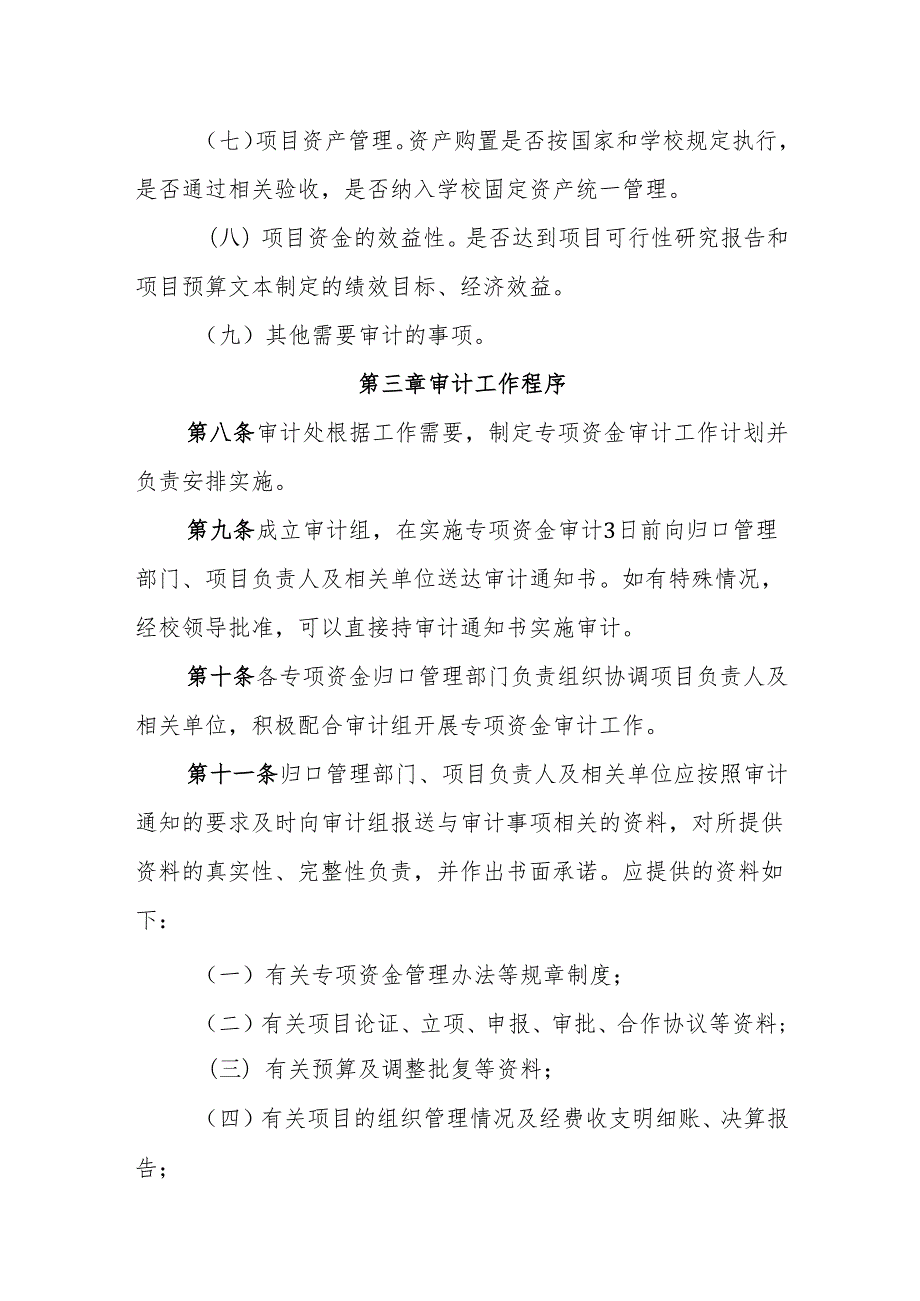 （七）项目资产管理。资产购置是否按国家和学校规定执行，
是否通过相关验收，是否纳入学校固定资产统一管理。
（八）项目资金的效益性。是否达到项目可行性研究报告和
项目预算文本制定的绩效目标、经济效益。
（九）其他需要审计的事项。
第三章审计工作程序
第八条审计处根据工作需要，制定专项资金审计工作计划并
负责安排实施。
第九条成立审计组，在实施专项资金审计3日前向归口管理
部门、项目负责人及相关单位送达审计通知书。如有特殊情况，
经校领导批准，可以直接持审计通知书实施审计。
第十条各专项资金归口管理部门负责组织协调项目负责人及
相关单位，积极配合审计组开展专项资金审计工作。
第十一条归口管理部门、项目负责人及相关单位应按照审计
通知的要求及时向审计组报送与审计事项相关的资料，对所提供
资料的真实性、完整性负责，并作出书面承诺。应提供的资料如
下：
（一）有关专项资金管理办法等规章制度；
（二）有关项目论证、立项、申报、审批、合作协议等资料；
（三）有关预算及调整批复等资料；
（四）有关项目的组织管理情况及经费收支明细账、决算报
告；